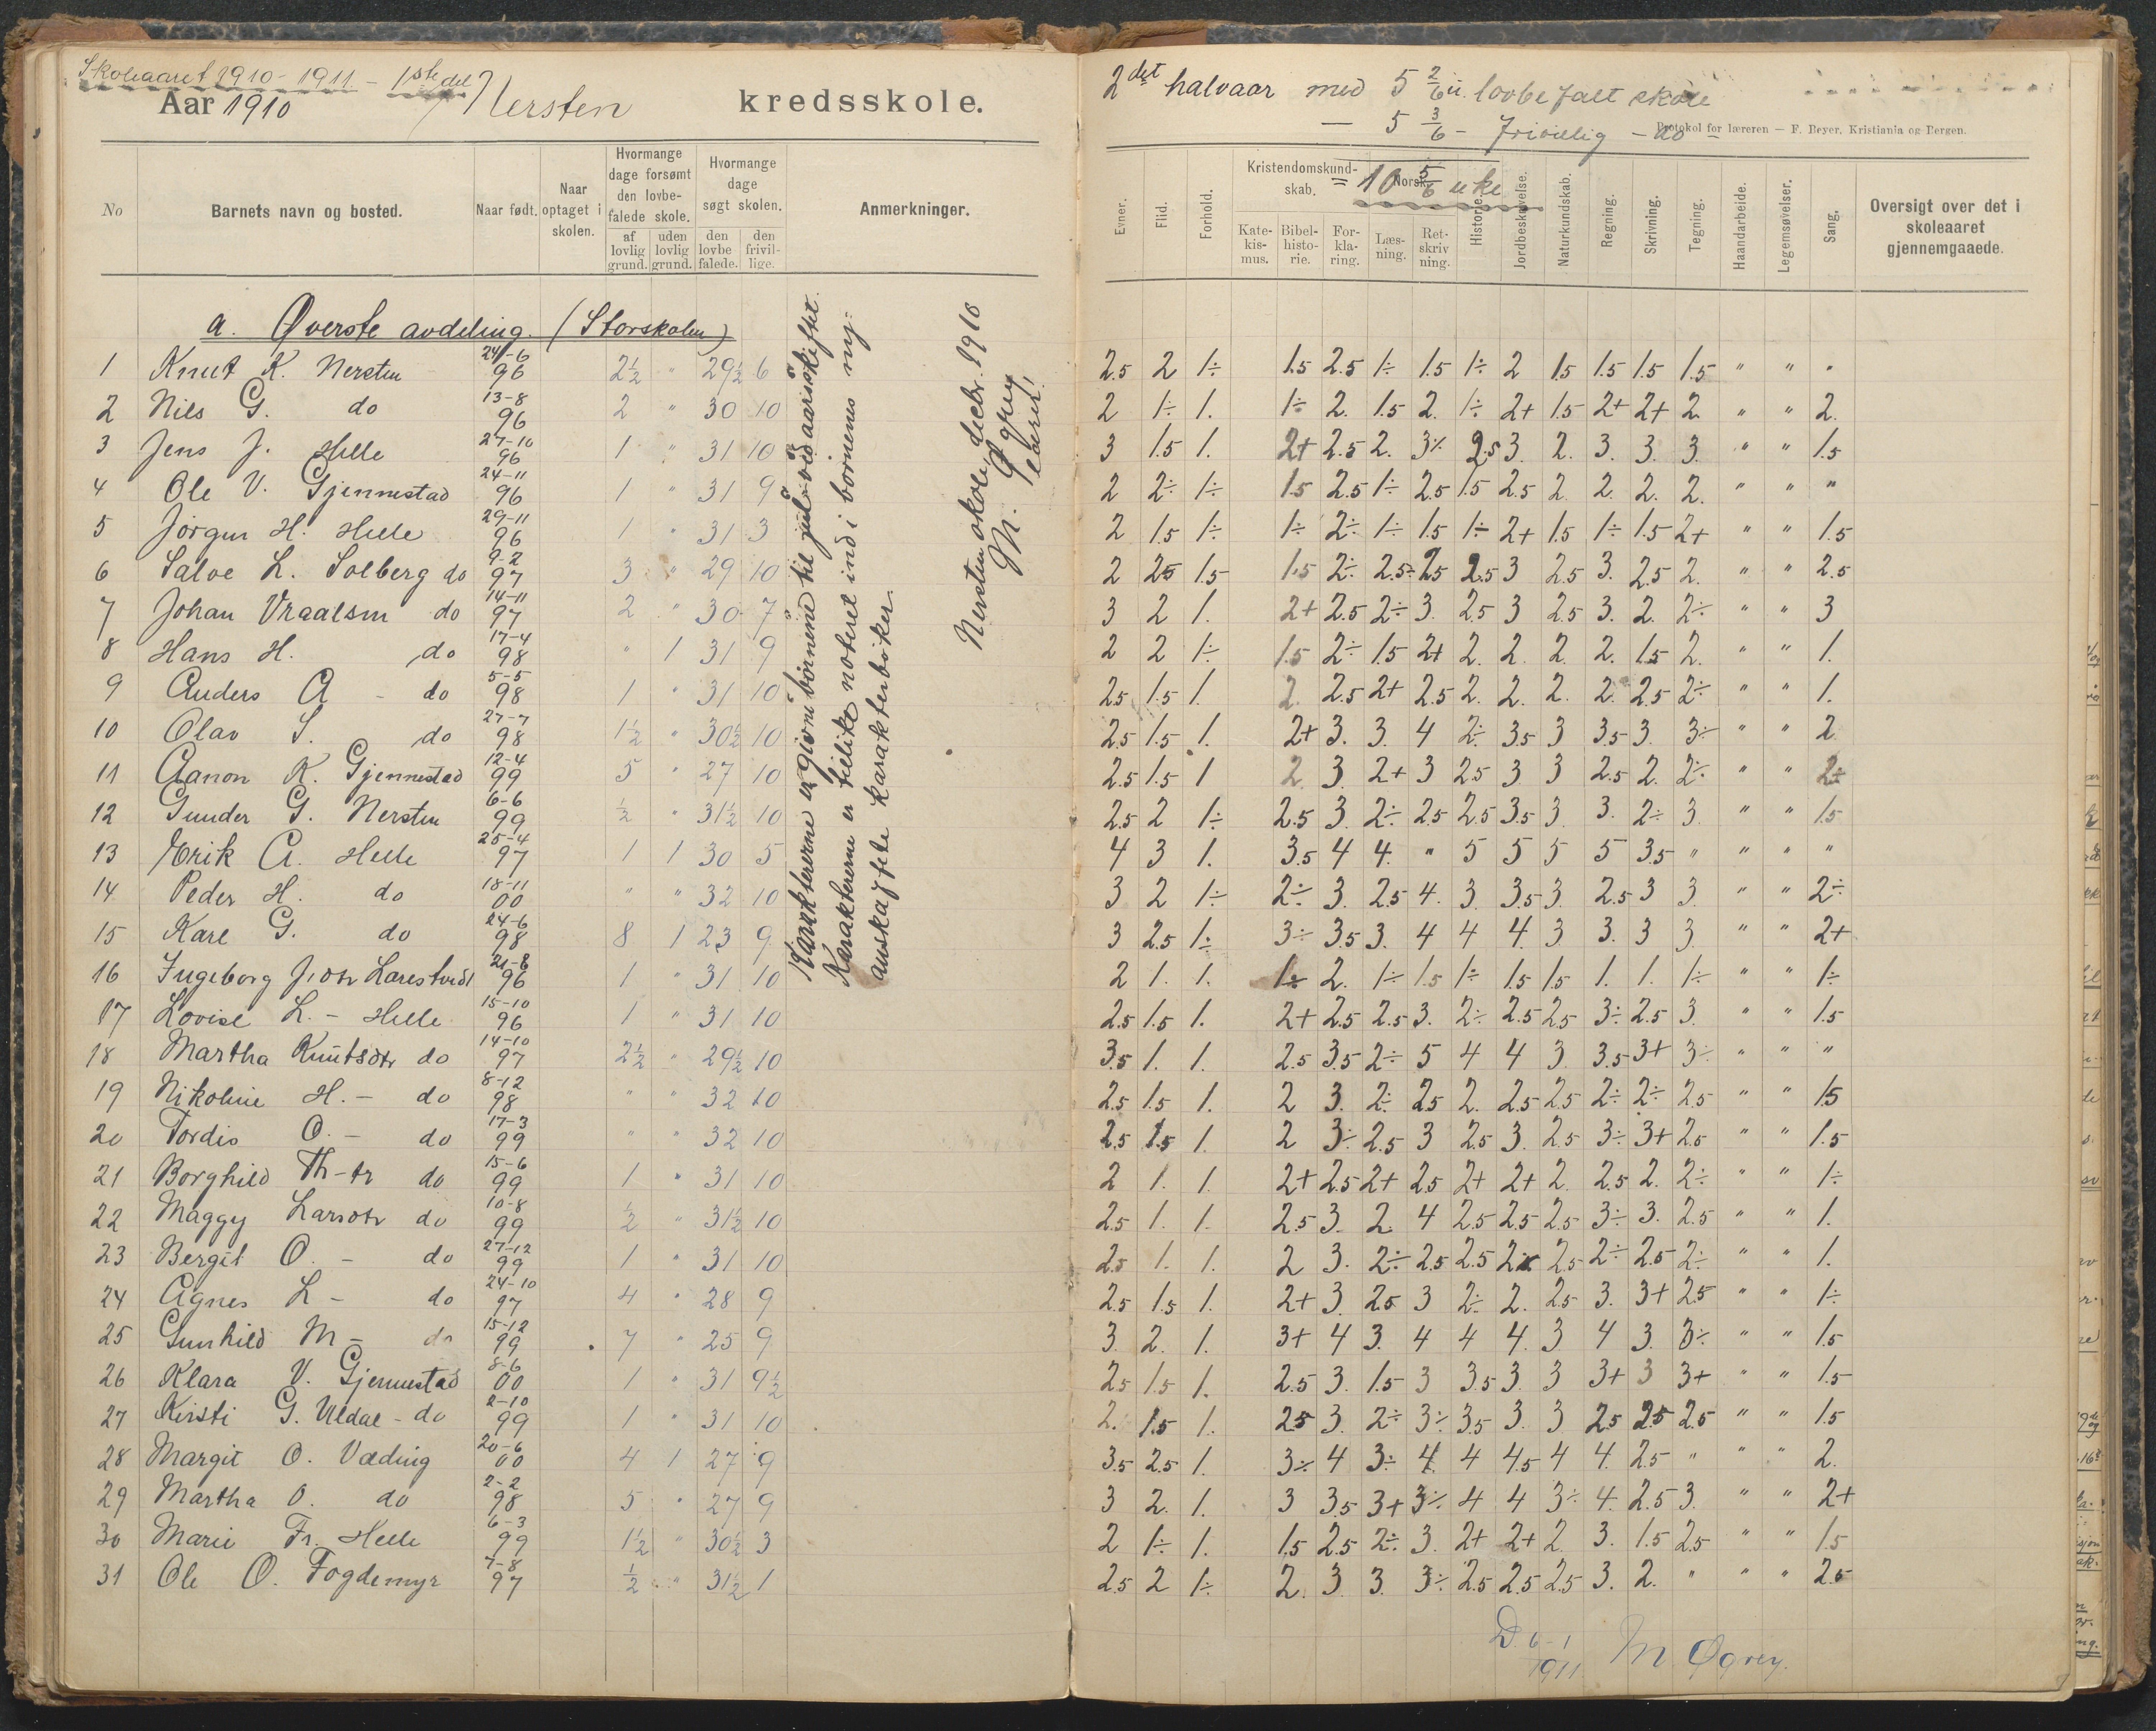 Skoleaaret 1910-1911. - 1ste del
Aar 1910 Nersten kredsskole.
No
Barnets navn og bosted.
Naar født.
Naar optaget i skolen.
Hvormange dage forsømt den lovbefalede skole.
af lovlig grund.
uden lovlig grund.
Hvormange dage søgt skolen.
den lovbefalede.
den frivillige.
Anmerkninger.
a. Øverste avdeling. (Storskolen)
1 Knut K. Nersten 24-6 96 2½ " 29½ 6
2 Nils G. do 13-8 96 2 " 30 10
3 Jens J. Helle 27-10 96 1 " 31 10
4 Ole V. Gjennestad 24-11 96 1 " 31 9
5 Jörgen H. Helle 29-11 96 1 " 31 3
6 Salve L. Solberg do 9-2 97 3 " 29 10
7 Johan Vraalsen do 14-11 97 2 " 30 7
8 Hans H. do 17-4 98 " 1 31 9
9 Anders A - do 5-5 98 1 " 31 10
10 Olav S. do 27-7 98 1½ " 30½ 10
11 Aanon K. Gjennestad 12-4 99 5 " 27 10
12 Gunder G. Nersten 6-6 99 ½ " 31½ 10
13 Erik A. Helle 25-4 97 1 1 30 5
14 Peder H. do 18-11 00 " " 32 10
15 Karl G. do 24-6 98 8 1 23 9
16 Ingeborg 21-8 96 1 " 31 10
17 Lovise L. - Helle 15-10 96 1 " 31 10
18 Martha Knutsdtr do 14-10 97 2½ " 29½ 10
19 Nikoline H. - do 8-12 98 " " 32 10
20 Tordis O. - do 17-3 99 " " 32 10
21 Borghild Th-tr do 15-6 99 1 " 31 10
22 Maggy Larsdtr do 10-8 99 ½ " 31½ 10
23 Bergit O. - do 27-12 99 1 " 31 10
24 Agnes L - do 24-10 97 4 " 28 9
25 Gunhild M - do 15-12 99 7 " 25 9
26 Klara V. Gjennestad 8-6 00 1 " 31 9½
27 Kirsti G. Uldal - do 2-10 99 1 " 31 10
28 Margit O. Væding 20-6 00 4 1 27 9
29 Martha O. do 2-2 98 5 " 27 9
30 Marie Fr. Helle 6-3 99 1½ " 30½ 3
31 Ole O. Fogdemyr 7-8 97 ½ " 31½ 1
Karaktererne er givne börnene til jul ved aarsskiftet.
Karaktererne er tillike noteret ind i börnenes ny-
anskaffete karakterböker.
Nersten skole, decbr. 1910
M. Øgrey
lærer.
2det halvaar med 5 2/6 u. lovbefalt skole
— 5 3/6 - frivillig - do -
= 10 5/6 uke
Protokol for læreren — F. Beyer, Kristiania og Bergen.
Evner.
Flid.
Forhold.
Kristendomskundskab.
Katekismus.
Bibelhistorie.
Forklaring.
Norsk.
Læsning.
Retskrivning.
Historie.
Jordbeskrivelse.
Naturkundskab.
Regning.
Skrivning.
Tegning.
Haandarbeide.
Legemsøvelser.
Sang.
Oversigt over det i skoleaaret gjennemgaaede.
2.5 2 1÷ 1.5 2.5 1÷ 1.5 1÷ 2 1.5 1.5 1.5 1.5 " " "
2 1÷ 1. 1÷ 2. 1.5 2. 1÷ 2+ 1.5 2+ 2+ 2. " " 2.
3 1.5 1. 2+ 2.5 2. 3÷ 2.5 3. 2. 3. 3. 3. " " 1.5
2 2÷ 1÷ 1.5 2.5 1÷ 2.5 1.5 2.5 2. 2. 2. 2. " " "
2 1.5 1÷ 1÷ 2÷ 1÷ 1.5 1÷ 2+ 1.5 1÷ 1.5 2+ " " 1.5
2 2.5 1.5 1.5 2÷ 2.5÷ 2.5 2.5 3 2.5 3. 2.5 2. " " 2.5
3 2 1. 2+ 2.5 2÷ 3. 2.5 3 2.5 3. 2. 2÷ " " 3
2 2 1÷ 1.5 2÷ 1.5 2+ 2. 2. 2. 2. 1.5 2. " " 1.
2.5 1.5 1. 2. 2.5 2+ 2.5 2. 2. 2. 2. 2.5 2÷ " " 1.
2.5 1.5 1. 2+ 3. 3. 4 2÷ 3.5 3 3.5 3. 3÷ " " 2.
2.5 1.5 1 2. 3. 2+ 3 2.5 3 3 2.5 2. 2÷ " " 2÷
2.5 2 1÷ 2.5 3. 2÷ 2.5 2.5 3.5 3. 3. 2÷ 3. " " 1.5
4 3 1. 3.5 4 4. " 5 5 5 5 3.5 " " " "
3 2 1÷ 2÷ 3. 2.5 4. 3. 3.5 3. 2.5 3 3. " " 2÷
3 2.5 1÷ 3÷ 3.5 3. 4 4 4. 3 3. 3 3. " " 2+
2 1. 1. 1÷ 2. 1÷ 1.5 1÷ 1.5 1.5 1. 1. 1÷ " " 1÷
2.5 1.5 1. 2+ 2.5 2.5 3. 2÷ 2.5 2.5 3÷ 2.5 3. " " 1.5
3.5 1. 1. 2.5 3.5 2÷ 5 4 4 3 3.5 3+ 3÷ " " "
2.5 1.5 1. 2 3. 2÷ 2.5 2. 2.5 2.5 2÷ 2÷ 2.5 " " 1.5
2.5 1.5 1. 2 3÷ 2.5 3 2.5 3. 2.5 3÷ 3+ 2.5 " " 1.5
2 1. 1. 2+ 2.5 2+ 2.5 2+ 2+ 2. 2.5 2. 2÷ " " 1÷
2.5 1. 1. 2.5 3. 2. 4 2.5 2.5 2.5 3÷ 3. 2.5 " " 1.
2.5 1. 1. 2 3. 2÷ 2.5 2.5 2 2.5 2÷ 2.5 2÷ " " 1.
2.5 1.5 1. 2+ 3. 2.5 3 2÷ 2. 2.5 3. 3+ 2.5 " " 1÷
3. 2. 1. 3+ 4 3. 4 4 4. 3 4 3. 3÷ " " 1.5
2.5 1.5 1. 2.5 3. 1.5 3 3.5 3. 3 3+ 3 3+ " " 1.5
2. 1.5 1. 2.5 3. 2÷ 3÷ 3.5 3. 3 2.5 2.5 2.5 " " 1.5
3.5 2.5 1. 3÷ 4 3÷ 4. 4 4.5 4 4. 2.5 " " " 2.
3 2. 1. 3 3.5 3+ 3÷ 4 4 3÷ 4. 2.5 3. " " 2+
2 1÷ 1. 1.5 2.5 2÷ 3. 2+ 2+ 2. 3. 1.5 2.5 " " 1.5
2.5 2 1÷ 2. 3 3. 3÷ 2.5 2.5 2.5 3. 2. " " " 2.5
D. 6-1 1911 M. Øgrey.